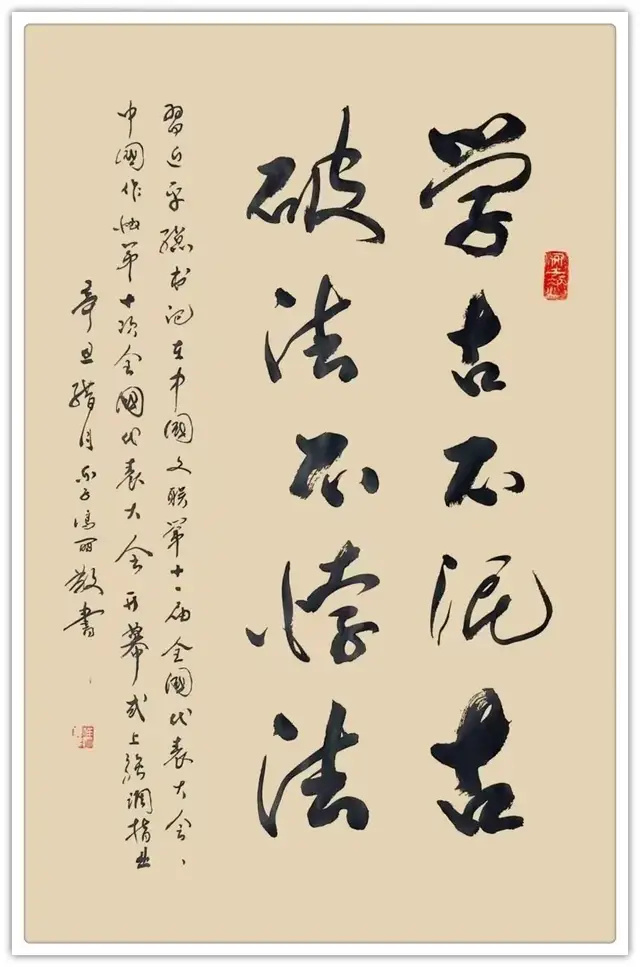 学古不泥古
破法不悖法
習近平總书记在中國文联第十一届全國代表大会、
中國作协第十次全國代表大会开幕式上強调指出
辛丑腊月 冯丽敬書